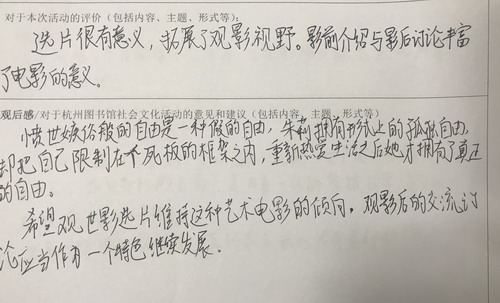 对于本次活动的评价（包括内容、主题、形式等）:
选片很有意义，拓展了观影视野。影前介绍与影后讨论丰富
了电影的意义。
观后感/对于杭州图书馆社会文化活动的意见和建议（包括内容、主题、形式等）
愤世嫉俗般的自由是一种假的自由，朱莉拥有形式上的孤独自由，
却把自己限制在个死板的框架之内，重新热爱生活之后她才拥有了真正
的自由。
希望观世影选片维持这种艺术电影的倾向，观影后的交流讨
论应当作为一个特色继续发展.